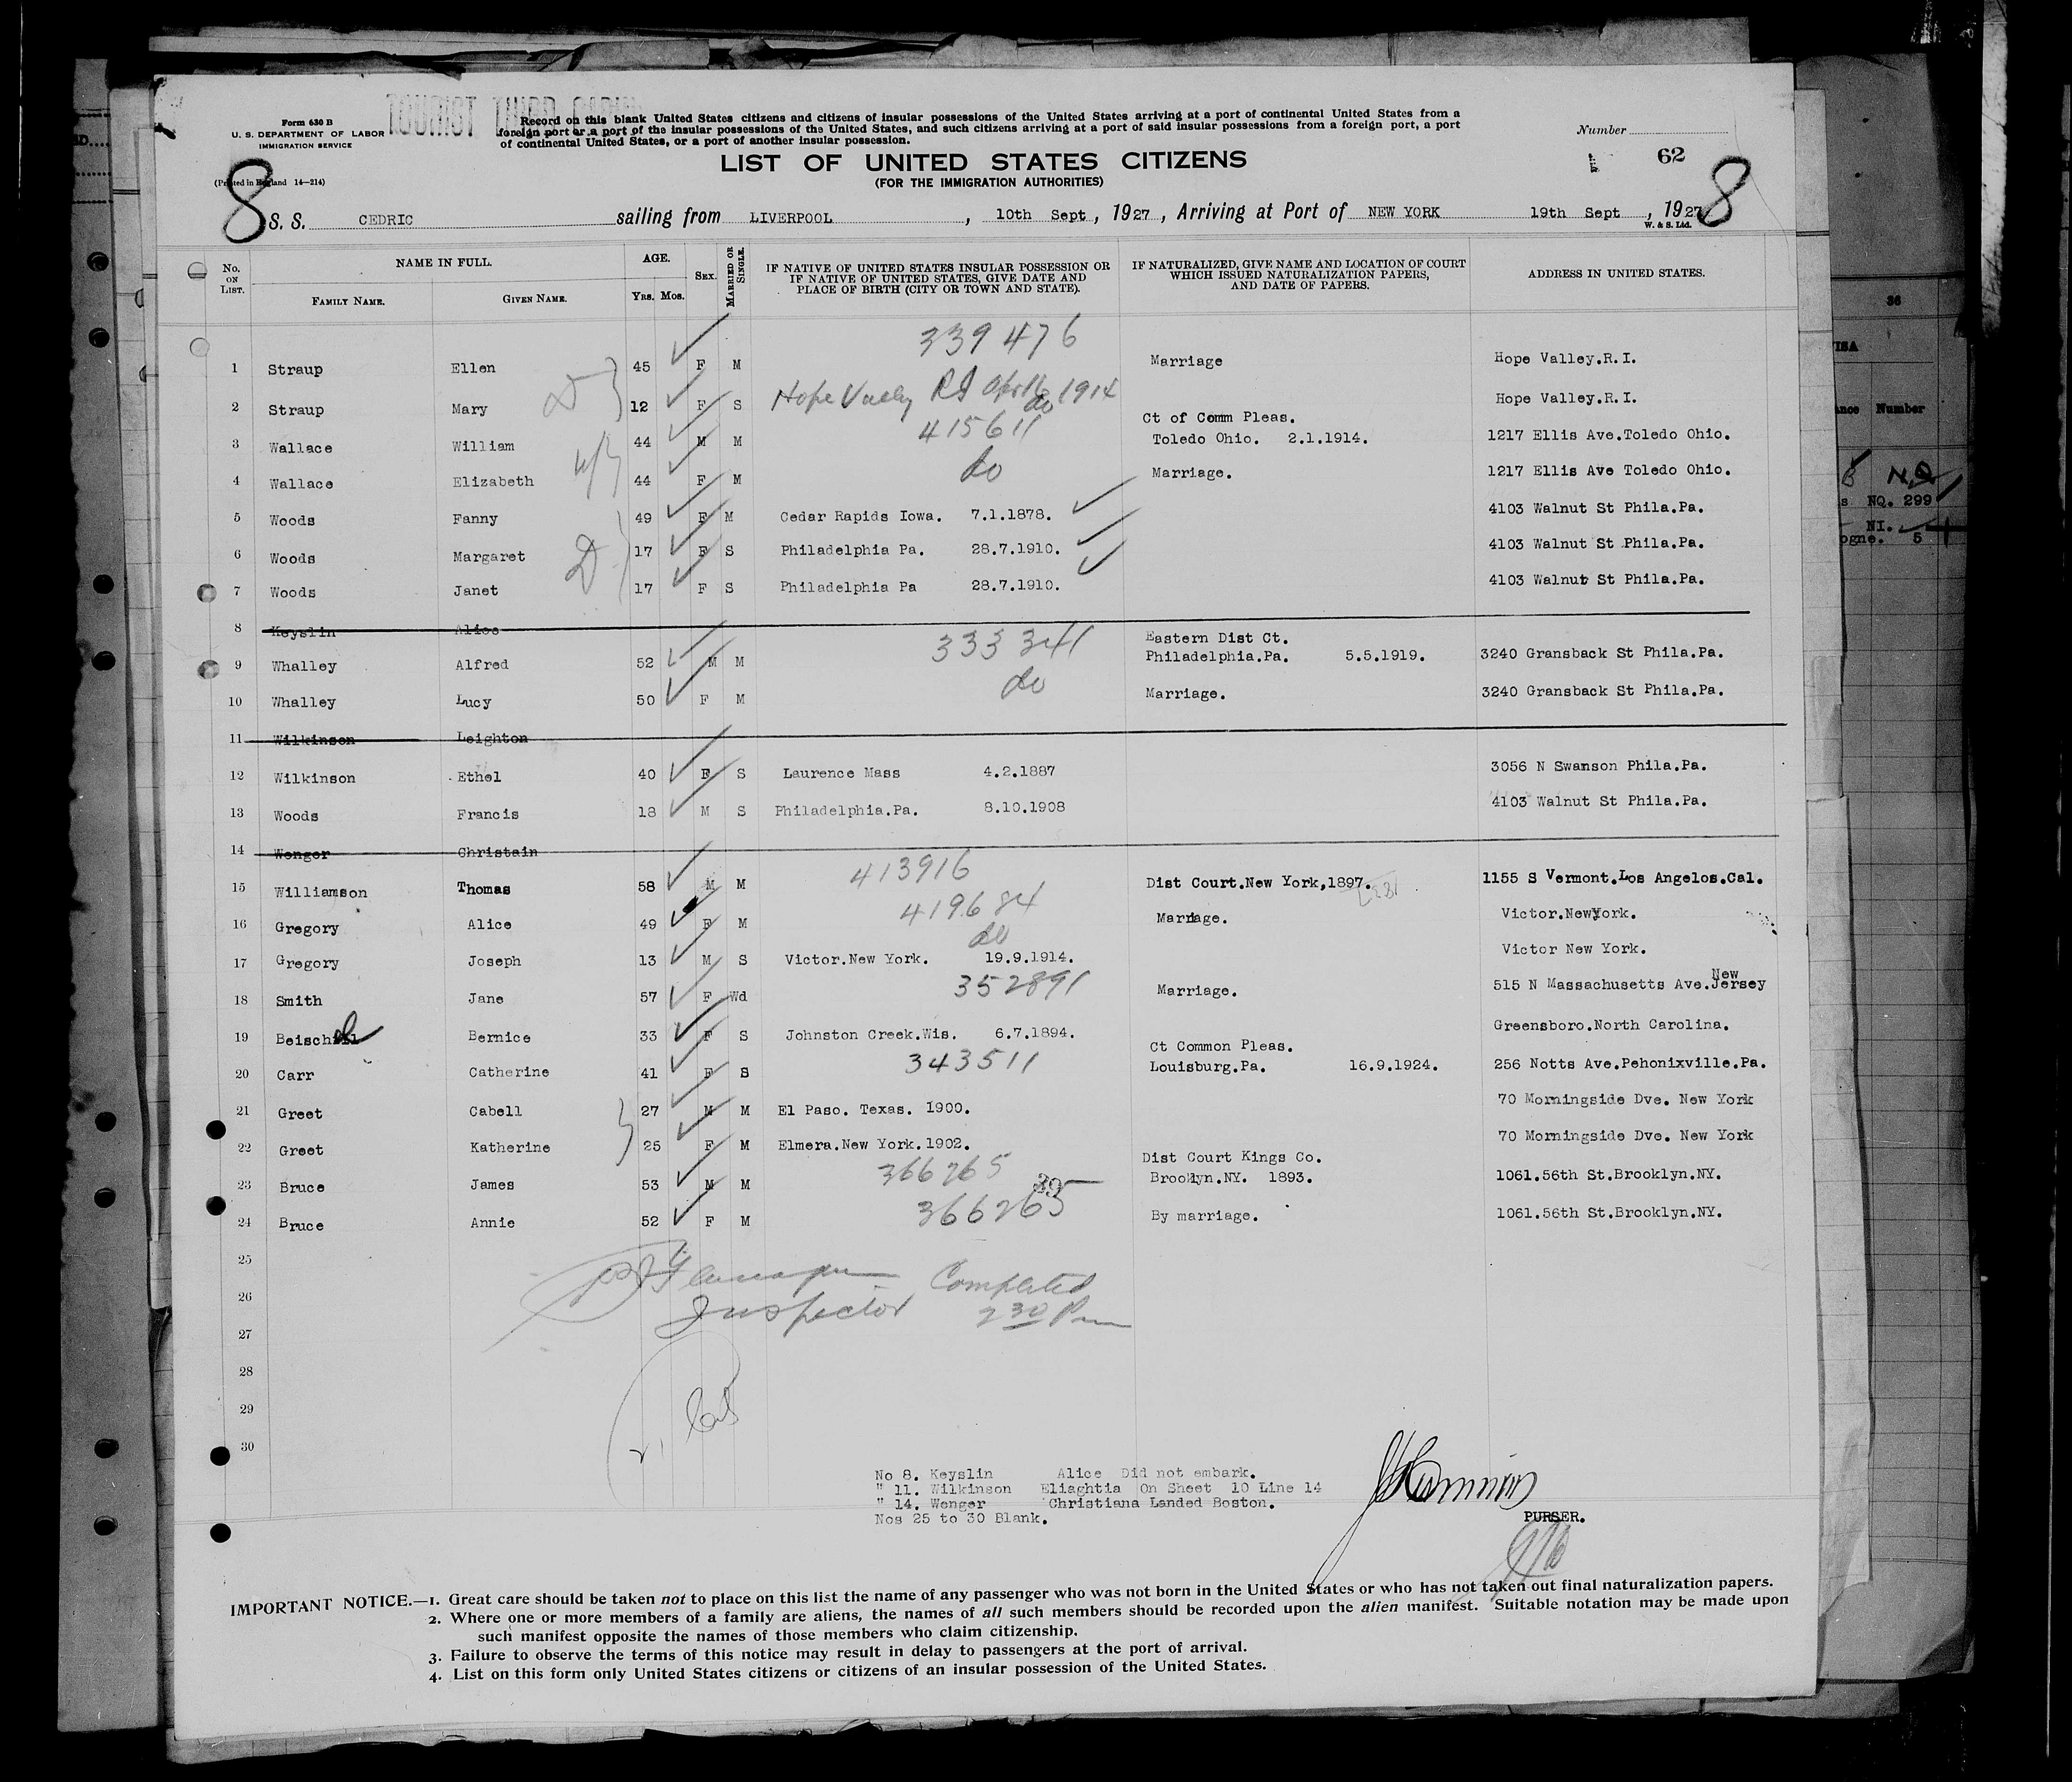 TOURIST THIRD CABIN
Form 630 B
U. S. DEPARTMENT OF LABOR
IMMIGRATION SERVICE
(Printed in England 14—214)
Record on this blank United States citizens and citizens of insular possessions of the United States arriving at a port of continental United States from a
foreign port or a port of the insular possessions of the United States, and such citizens arriving at a port of said insular possessions from a foreign port, a port
of continental United States, or a port of another insular possession.
Number
62
LIST OF UNITED STATES CITIZENS
(FOR THE IMMIGRATION AUTHORITIES)
8 S. S. CEDRIC sailing from LIVERPOOL, 10th Sept, 1927, Arriving at Port of NEW YORK 19th Sept, 1927 8
W. & S. Ltd.
No. ON LIST. NAME IN FULL. FAMILY NAME. GIVEN NAME. AGE. YRS. MOS. SEX. MARRIED OR SINGLE. IF NATIVE OF UNITED STATES INSULAR POSSESSION OR IF NATIVE OF UNITED STATES, GIVE DATE AND PLACE OF BIRTH (CITY OR TOWN AND STATE). IF NATURALIZED, GIVE NAME AND LOCATION OF COURT WHICH ISSUED NATURALIZATION PAPERS, AND DATE OF PAPERS. ADDRESS IN UNITED STATES.
339476
1 Straup Ellen 45 F M Marriage Hope Valley.R.I.
2 Straup Mary 12 F S Hope Valley RI 1914 do Hope Valley.R.I.
415611 Ct of Comm Pleas.
3 Wallace William 44 M M Toledo Ohio. 2.1.1914. 1217 Ellis Ave.Toledo Ohio.
4 Wallace Elizabeth 44 F M do Marriage. 1217 Ellis Ave Toledo Ohio.
5 Woods Fanny 49 F M Cedar Rapids Iowa. 7.1.1878. 4103 Walnut St Phila.Pa.
6 Woods Margaret 17 F S Philadelphia Pa. 28.7.1910. 4103 Walnut St Phila.Pa.
7 Woods Janet 17 F S Philadelphia Pa 28.7.1910. 4103 Walnut St Phila.Pa.
8 Keyslin Alice
333341 Eastern Dist Ct.
9 Whalley Alfred 52 M M Philadelphia.Pa. 5.5.1919. 3240 Gransback St Phila.Pa.
10 Whalley Lucy 50 F M do Marriage. 3240 Gransback St Phila.Pa.
11 Wilkinson Leighton
12 Wilkinson Ethel 40 F S Laurence Mass 4.2.1887 3056 N Swanson Phila.Pa.
13 Woods Francis 18 M S Philadelphia.Pa. 8.10.1908 4103 Walnut St Phila.Pa.
14 Wenger Christain
413916
15 Williamson Thomas 58 M M Dist Court.New York,1897. 1155 S Vermont.Los Angelos.Cal.
419684
16 Gregory Alice 49 F M Marriage. Victor.NewYork.
do
17 Gregory Joseph 13 M S Victor.New York. 19.9.1914. Victor New York.
18 Smith Jane 57 F Wd 352891 Marriage. 515 N Massachusetts Ave.New Jersey
19 Beischel Bernice 33 F S Johnston Creek.Wis. 6.7.1894. Greensboro.North Carolina.
343511 Ct Common Pleas.
20 Carr Catherine 41 F S Louisburg.Pa. 16.9.1924. 256 Notts Ave.Pehonixville.Pa.
21 Greet Cabell 27 M M El Paso. Texas. 1900. 70 Morningside Dve. New York
22 Greet Katherine 25 F M Elmera.New York.1902. 70 Morningside Dve. New York
366265 Dist Court Kings Co.
23 Bruce James 53 M M Brooklyn.NY. 1893. 1061.56th St.Brooklyn.NY.
39
24 Bruce Annie 52 F M 366265 By marriage. 1061.56th St.Brooklyn.NY.
25
Completed
26
Inspector 2 30 Pm
27
28
29
30
No 8. Keyslin Alice Did not embark.
" 11. Wilkinson Eliaghtia On Sheet 10 Line 14
" 14. Wenger Christiana Landed Boston.
Nos 25 to 30 Blank.
PURSER.
IMPORTANT NOTICE.—1. Great care should be taken not to place on this list the name of any passenger who was not born in the United States or who has not taken out final naturalization papers.
2. Where one or more members of a family are aliens, the names of all such members should be recorded upon the alien manifest. Suitable notation may be made upon
such manifest opposite the names of those members who claim citizenship.
3. Failure to observe the terms of this notice may result in delay to passengers at the port of arrival.
4. List on this form only United States citizens or citizens of an insular possession of the United States.
36
Number
NQ. 299
NI.
5